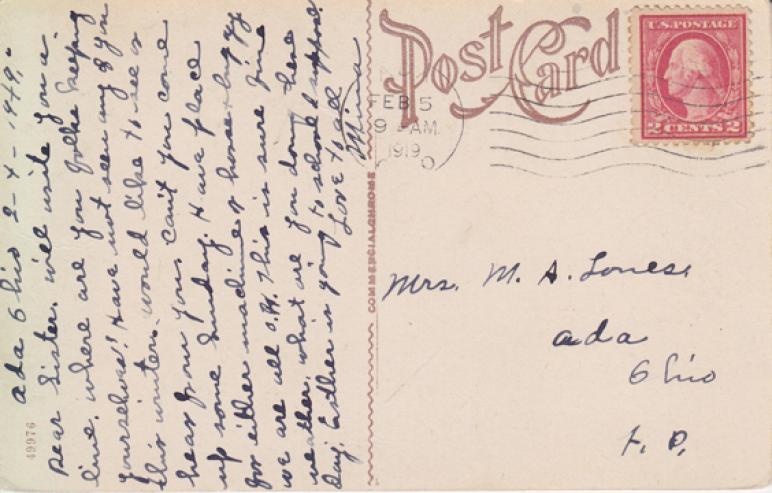 Ada Ohio 2-4-1919.
Dear Sister, will write you a
line. where are you folks keeping
yourselves? Have not seen any of you
this winter. would like to see &
hear from you. Can't you come
up some Sunday. Have place
for either machine or horse & buggy
we are all O.K. This is sure fine
weather. what are you doing these
day. Esther is going to school I suppose.
Love to all
Minna
49976
COMMERCIALCHROME
Post Card
FEB 5
9 AM
1919
O
U.S. POSTAGE
2 CENTS 2
Mrs. M. A. Jones.
Ada
Ohio